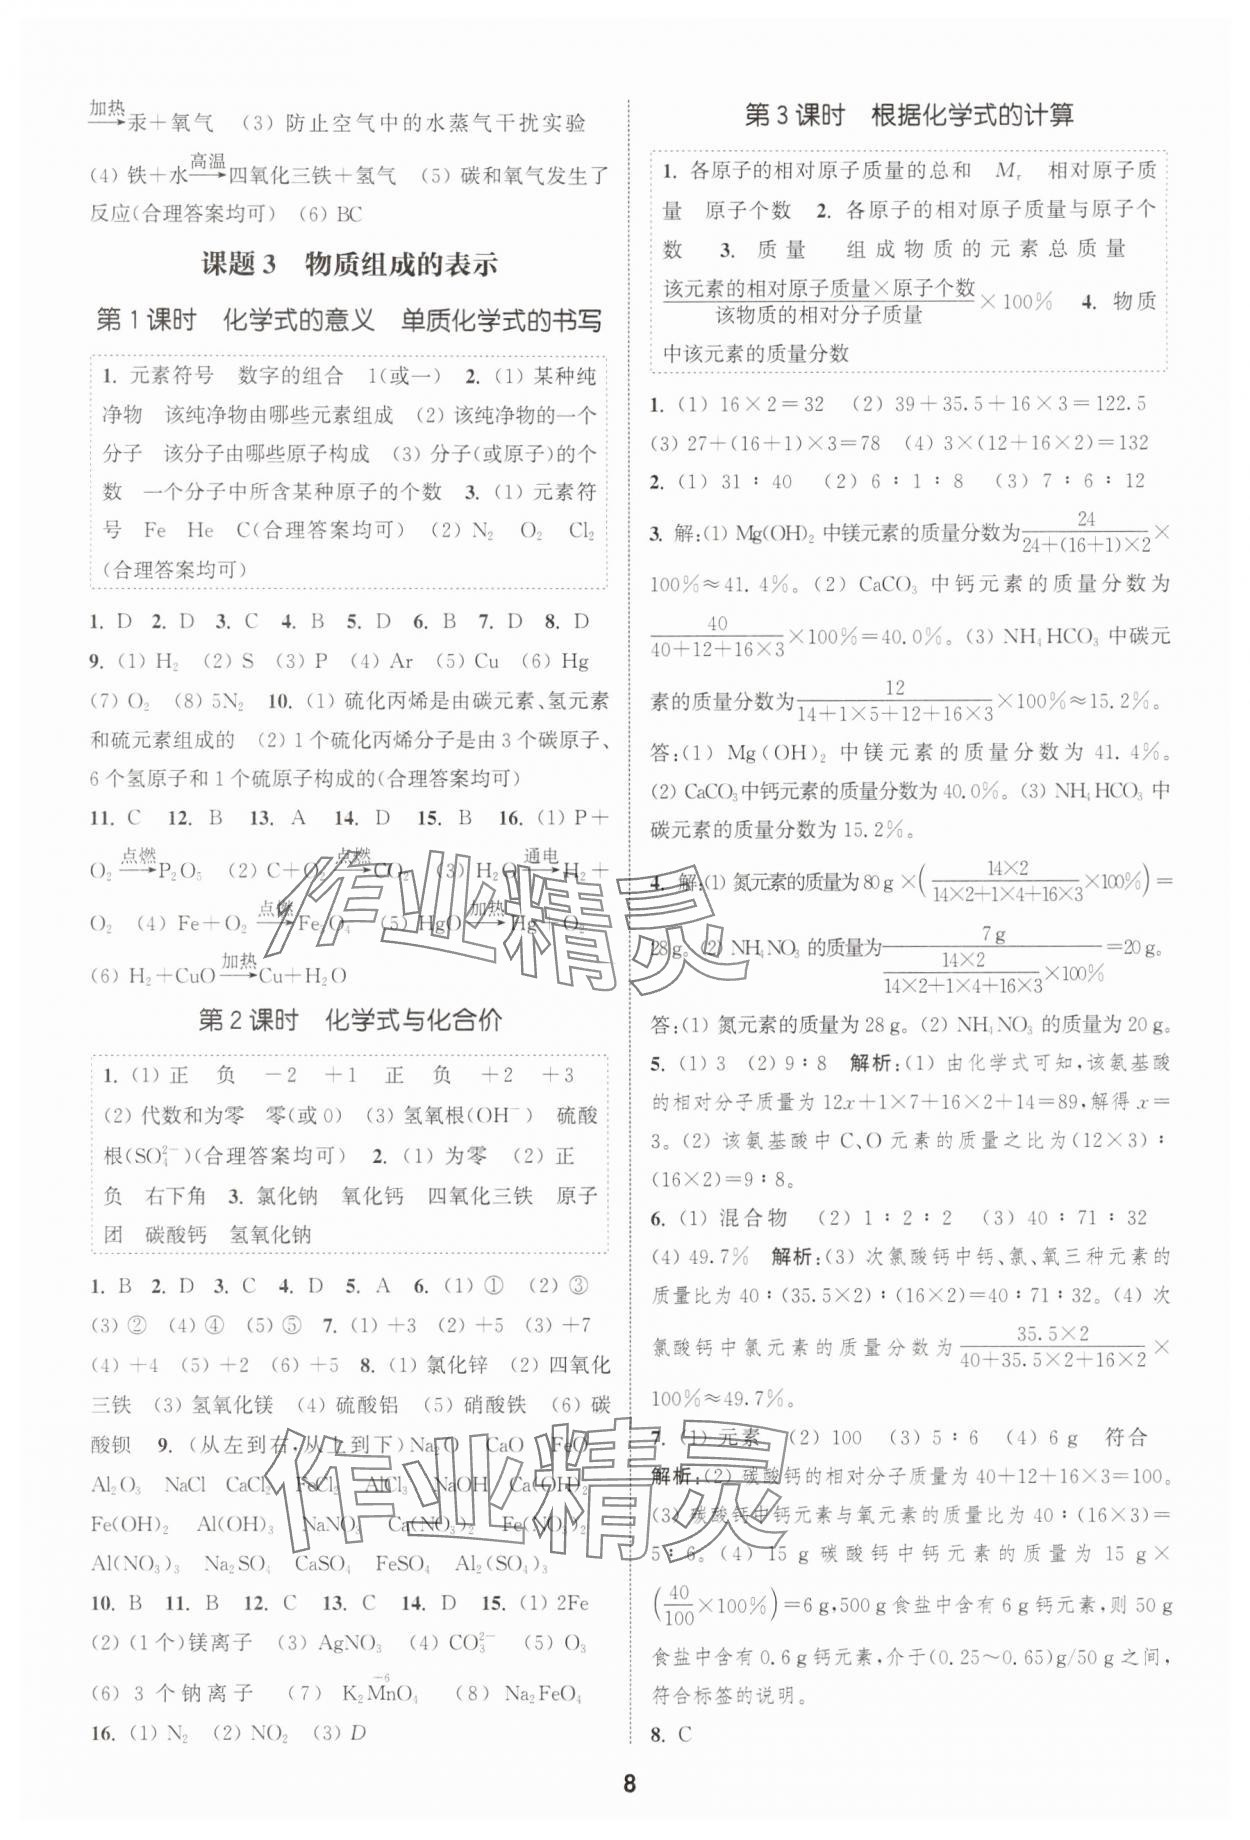 加热
⟶汞＋氧气　(3) 防止空气中的水蒸气干扰实验
(4) 铁＋水 高温⟶ 四氧化三铁＋氢气　(5) 碳和氧气发生了
反应(合理答案均可)　(6) BC
课题 3　物质组成的表示
第 1 课时　化学式的意义　单质化学式的书写
1. 元素符号　数字的组合　1(或一)　2. (1) 某种纯
净物　该纯净物由哪些元素组成　(2) 该纯净物的一个
分子　该分子由哪些原子构成　(3) 分子(或原子)的个
数　一个分子中所含某种原子的个数　3. (1) 元素符
号　Fe　He　C(合理答案均可)　(2) N₂　O₂　Cl₂
(合理答案均可)
1. D　2. D　3. C　4. B　5. D　6. B　7. D　8. D
9. (1) H₂　(2) S　(3) P　(4) Ar　(5) Cu　(6) Hg
(7) O₂　(8) 5N₂　10. (1) 硫化丙烯是由碳元素、氢元素
和硫元素组成的　(2) 1 个硫化丙烯分子是由 3 个碳原子、
6 个氢原子和 1 个硫原子构成的(合理答案均可)
11. C　12. B　13. A　14. D　15. B　16. (1) P＋
O₂ 点燃⟶ P₂O₅　(2) C＋O₂ 点燃⟶ CO₂　(3) H₂O 通电⟶ H₂＋
O₂　(4) Fe＋O₂ 点燃⟶ Fe₃O₄　(5) HgO 加热⟶ Hg＋O₂
(6) H₂＋CuO 加热⟶ Cu＋H₂O
第 2 课时　化学式与化合价
1. (1) 正　负　－2　＋1　正　负　＋2　＋3
(2) 代数和为零　零(或 0)　(3) 氢氧根(OH⁻)　硫酸
根(SO₄²⁻)(合理答案均可)　2. (1) 为零　(2) 正
负　右下角　3. 氯化钠　氧化钙　四氧化三铁　原子
团　碳酸钙　氢氧化钠
1. B　2. D　3. C　4. D　5. A　6. (1) ①　(2) ③
(3) ②　(4) ④　(5) ⑤　7. (1) ＋3　(2) ＋5　(3) ＋7
(4) ＋4　(5) ＋2　(6) ＋5　8. (1) 氯化锌　(2) 四氧化
三铁　(3) 氢氧化镁　(4) 硫酸铝　(5) 硝酸铁　(6) 碳
酸钡　9. (从左到右，从上到下) Na₂O　CaO　FeO
Al₂O₃　NaCl　CaCl₂　FeCl₂　AlCl₃　NaOH　Ca(OH)₂
Fe(OH)₂　Al(OH)₃　NaNO₃　Ca(NO₃)₂　Fe(NO₃)₂
Al(NO₃)₃　Na₂SO₄　CaSO₄　FeSO₄　Al₂(SO₄)₃
10. B　11. B　12. C　13. C　14. D　15. (1) 2Fe
(2) (1 个)镁离子　(3) AgNO₃　(4) CO₃²⁻　(5) O₃
(6) 3 个钠离子　(7) K₂M̅n̅O₄ (－6)　(8) Na₂FeO₄
16. (1) N₂　(2) NO₂　(3) D
第 3 课时　根据化学式的计算
1. 各原子的相对原子质量的总和　Mᵣ　相对原子质
量　原子个数　2. 各原子的相对原子质量与原子个
数　3. 质量　组成物质的元素总质量
该元素的相对原子质量×原子个数/该物质的相对分子质量 ×100%　4. 物质
中该元素的质量分数
1. (1) 16×2＝32　(2) 39＋35.5＋16×3＝122.5
(3) 27＋(16＋1)×3＝78　(4) 3×(12＋16×2)＝132
2. (1) 31∶40　(2) 6∶1∶8　(3) 7∶6∶12
3. 解：(1) Mg(OH)₂ 中镁元素的质量分数为 24/[24＋(16＋1)×2] ×
100%≈41.4%。(2) CaCO₃ 中钙元素的质量分数为
40/(40＋12＋16×3) ×100%＝40.0%。(3) NH₄HCO₃ 中碳元
素的质量分数为 12/(14＋1×5＋12＋16×3) ×100%≈15.2%。
答：(1) Mg(OH)₂ 中镁元素的质量分数为 41.4%。
(2) CaCO₃ 中钙元素的质量分数为 40.0%。(3) NH₄HCO₃ 中
碳元素的质量分数为 15.2%。
4. 解：(1) 氮元素的质量为 80 g×(14×2/(14×2＋1×4＋16×3) ×100%)＝
28 g。(2) NH₄NO₃ 的质量为 7 g/[14×2/(14×2＋1×4＋16×3) ×100%] ＝20 g。
答：(1) 氮元素的质量为 28 g。(2) NH₄NO₃ 的质量为 20 g。
5. (1) 3　(2) 9∶8　解析：(1) 由化学式可知，该氨基酸
的相对分子质量为 12x＋1×7＋16×2＋14＝89，解得 x＝
3。(2) 该氨基酸中 C、O 元素的质量之比为(12×3)∶
(16×2)＝9∶8。
6. (1) 混合物　(2) 1∶2∶2　(3) 40∶71∶32
(4) 49.7%　解析：(3) 次氯酸钙中钙、氯、氧三种元素的
质量比为 40∶(35.5×2)∶(16×2)＝40∶71∶32。(4) 次
氯酸钙中氯元素的质量分数为 35.5×2/(40＋35.5×2＋16×2) ×
100%≈49.7%。
7. (1) 元素　(2) 100　(3) 5∶6　(4) 6 g　符合
解析：(2) 碳酸钙的相对分子质量为 40＋12＋16×3＝100。
(3) 碳酸钙中钙元素与氧元素的质量比为 40∶(16×3)＝
5∶6。(4) 15 g 碳酸钙中钙元素的质量为 15 g×
(40/100 ×100%)＝6 g，500 g 食盐中含有 6 g 钙元素，则 50 g
食盐中含有 0.6 g 钙元素，介于(0.25～0.65)g/50 g 之间，
符合标签的说明。
8. C
8
作业精灵
作业精灵